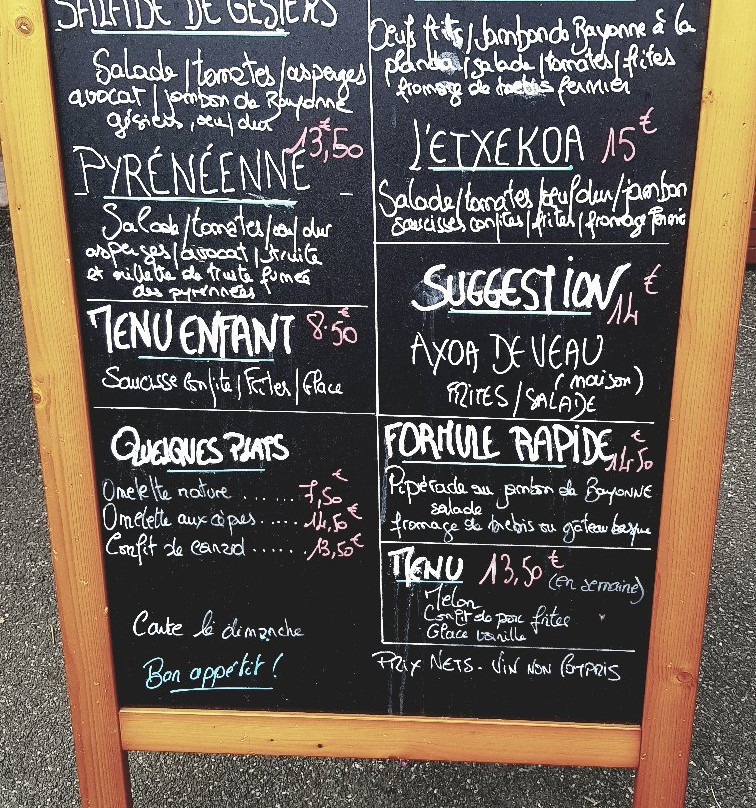 SALADE DE GESIERS
Salade / tomates / asperges
avocat / jambon de Bayonne
gésiers, oeuf dur
13,50 €
PYRÉNÉENNE _
Salade / tomates / oeuf dur
asperges / avocat / truite
et rillette de truite fumée
des pyrénnées
MENU ENFANT 8.50 €
Saucisse Confite / Frites / Glace
QUELQUES PLATS
Omelette nature ...... 7,50 €
Omelette aux cèpes .... 14,50 €
Confit de canard ...... 13,50 €
Carte le dimanche
Bon appétit !
Oeufs frits / Jambon de Bayonne à la
plancha / salade / tomates / frites
fromage de brebis fermier
L'ETXEKOA 15 €
Salade / tomates / oeuf dur / jambon
saucisses confites / frites / fromage fermier
SUGGESTION 14 €
AXOA DE VEAU
(maison)
FRITES / SALADE
FORMULE RAPIDE 14,50 €
Pipérade au jambon de BAYONNE
salade
fromage de brebis ou gâteau basque
MENU 13,50 € (en semaine)
Melon
Confit de porc frites
Glace vanille
PRIX NETS - VIN NON COMPRIS